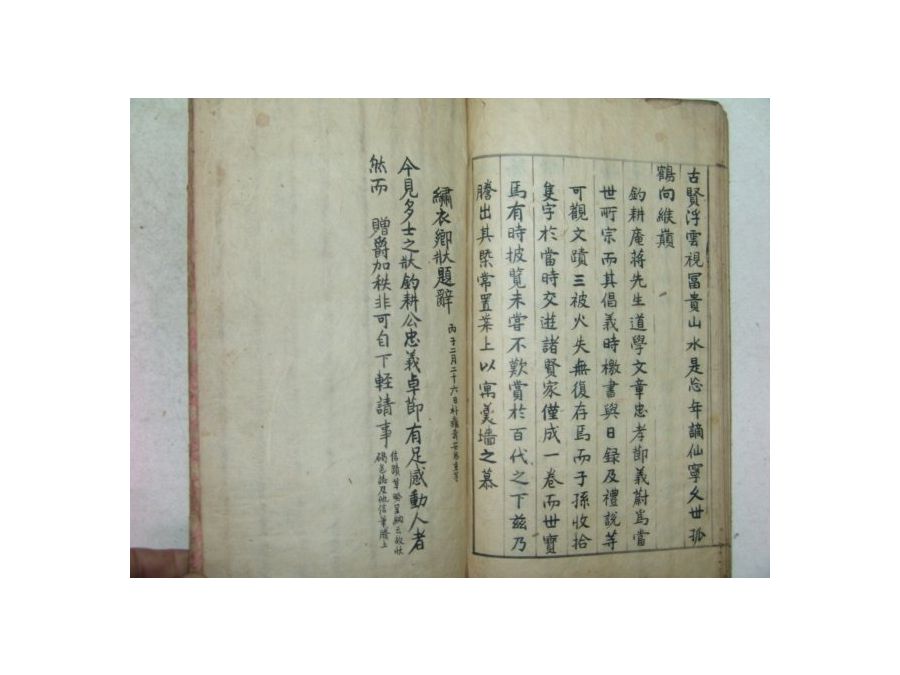 古賢浮雲視冨貴山水是忩年謫仙寧久世孤
鶴向維巔
釣耕庵蔣先生道學文章忠孝節義蔚爲當
世所宗而其倡義時檄書與日録及禮說等
可觀文蹟三被火失無復存焉而子孫收拾
隻字於當時交遊諸賢家僅成一卷而世寶
焉有時披覧未嘗不歎賞於百代之下兹乃
謄出其槩常置案上以寓羹墻之慕
繡衣鄉狀題辭 丙子二月二十六日
今見多士之狀釣耕公忠義卓節有足感動人者
然而 贈爵加秩非可自下輕請事